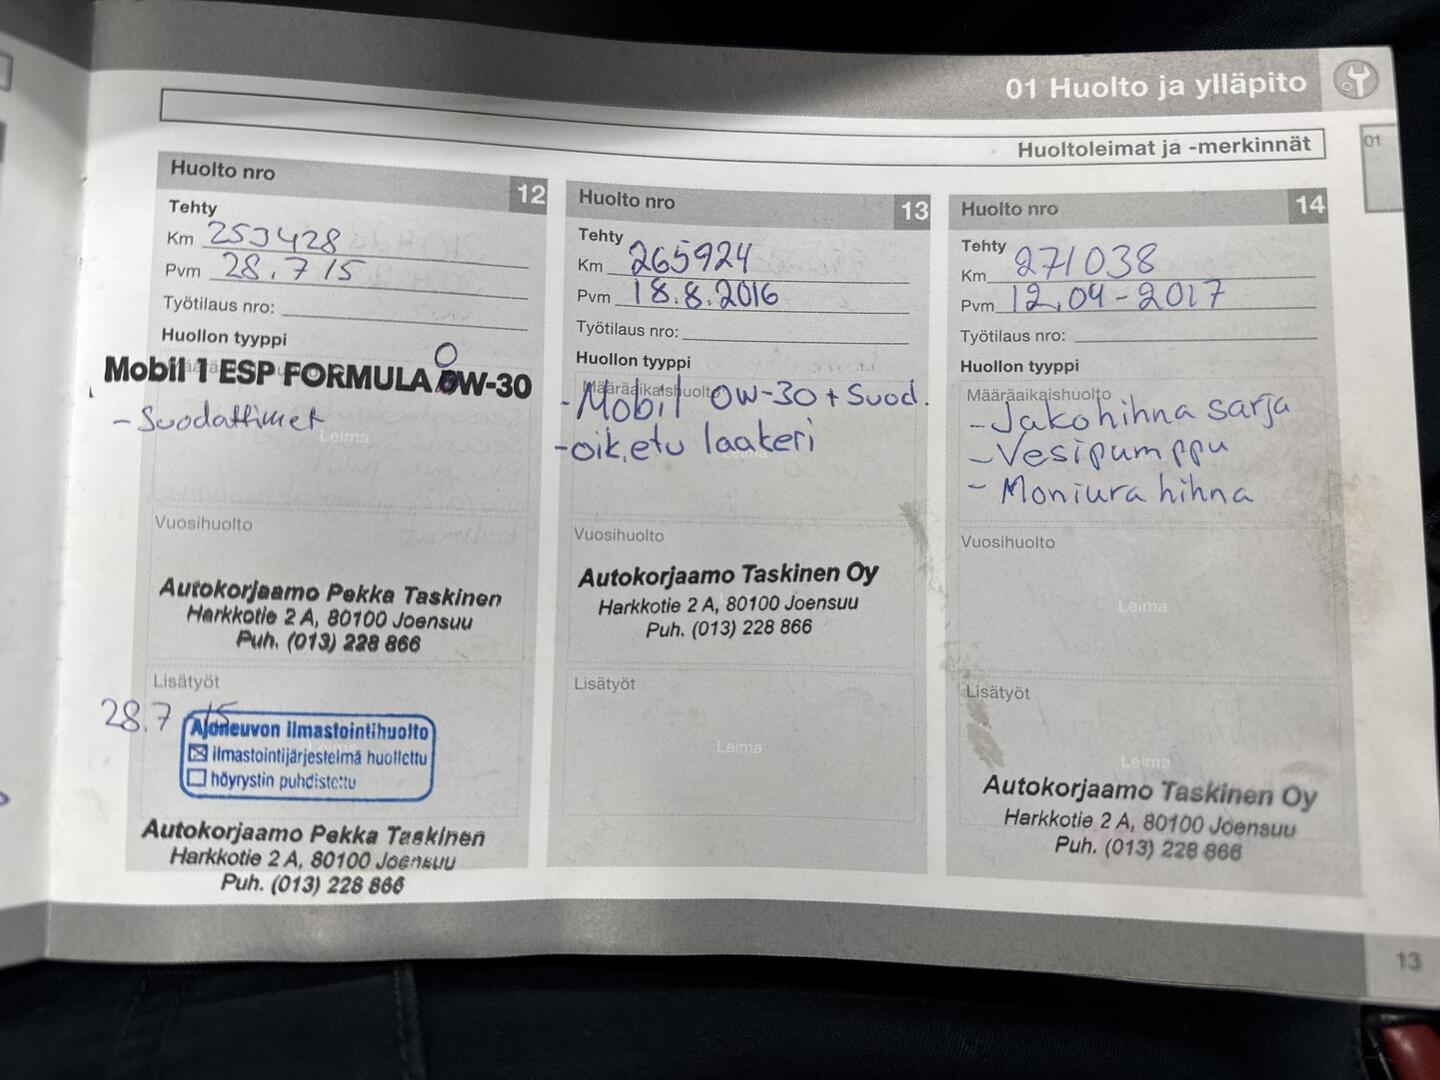 01 Huolto ja ylläpito
Huoltoleimat ja -merkinnät
01
Huolto nro 12
Tehty
Km 253428
Pvm 28.7 15
Työtilaus nro:
Huollon tyyppi
0
Mobil 1 ESP FORMULA 0W-30
- Suodattimet
Leima
Vuosihuolto
Autokorjaamo Pekka Taskinen
Harkkotie 2 A, 80100 Joensuu
Puh. (013) 228 866
Lisätyöt
28.7 15
Ajoneuvon ilmastointihuolto
ilmastointijärjestelmä huollettu
höyrystin puhdistettu
Autokorjaamo Pekka Taskinen
Harkkotie 2 A, 80100 Joensuu
Puh. (013) 228 866
Huolto nro 13
Tehty
Km 265924
Pvm 18.8.2016
Työtilaus nro:
Huollon tyyppi
Määräaikaishuolto
- Mobil 0W-30 + Suod.
- oik.etu laakeri
Vuosihuolto
Autokorjaamo Taskinen Oy
Harkkotie 2 A, 80100 Joensuu
Puh. (013) 228 866
Lisätyöt
Leima
Huolto nro 14
Tehty
Km 271038
Pvm 12.04-2017
Työtilaus nro:
Huollon tyyppi
Määräaikaishuolto
- Jakohihna sarja
- Vesipumppu
- Moniura hihna
Vuosihuolto
Leima
Lisätyöt
Leima
Autokorjaamo Taskinen Oy
Harkkotie 2 A, 80100 Joensuu
Puh. (013) 228 866
13